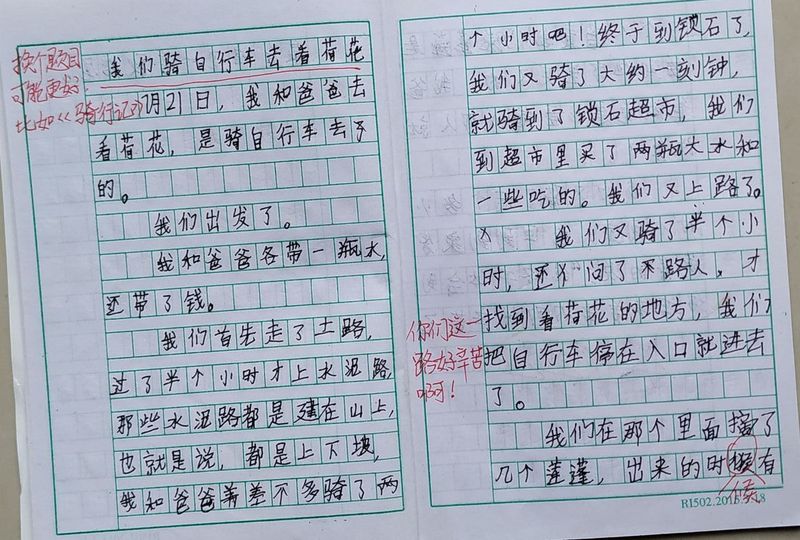 换个题目
可能更好,
比如《骑行记》
我们骑自行车去看荷花
7月21日，我和爸爸去
看荷花，是骑自行车去
的。
我们出发了。
我和爸爸各带一瓶水,
还带了钱。
我们首先走了土路，
过了半个小时才上水泥路,
那些水泥路都是建在山上,
也就是说，都是上下坡，
我和爸爸差不多骑了两
个小时吧！终于到锁石了,
我们又骑了大约一刻钟，
就骑到了锁石超市，我们
到超市里买了两瓶大水和
一些吃的。我们又上路了。
我们又骑了半个小
时，还问了不路人，才
找到看荷花的地方，我们
把自行车停在入口就进去
了。
你们这一
路好辛苦
啊！
我们在那个里面摘了
几个莲蓬，出来的时候有
候